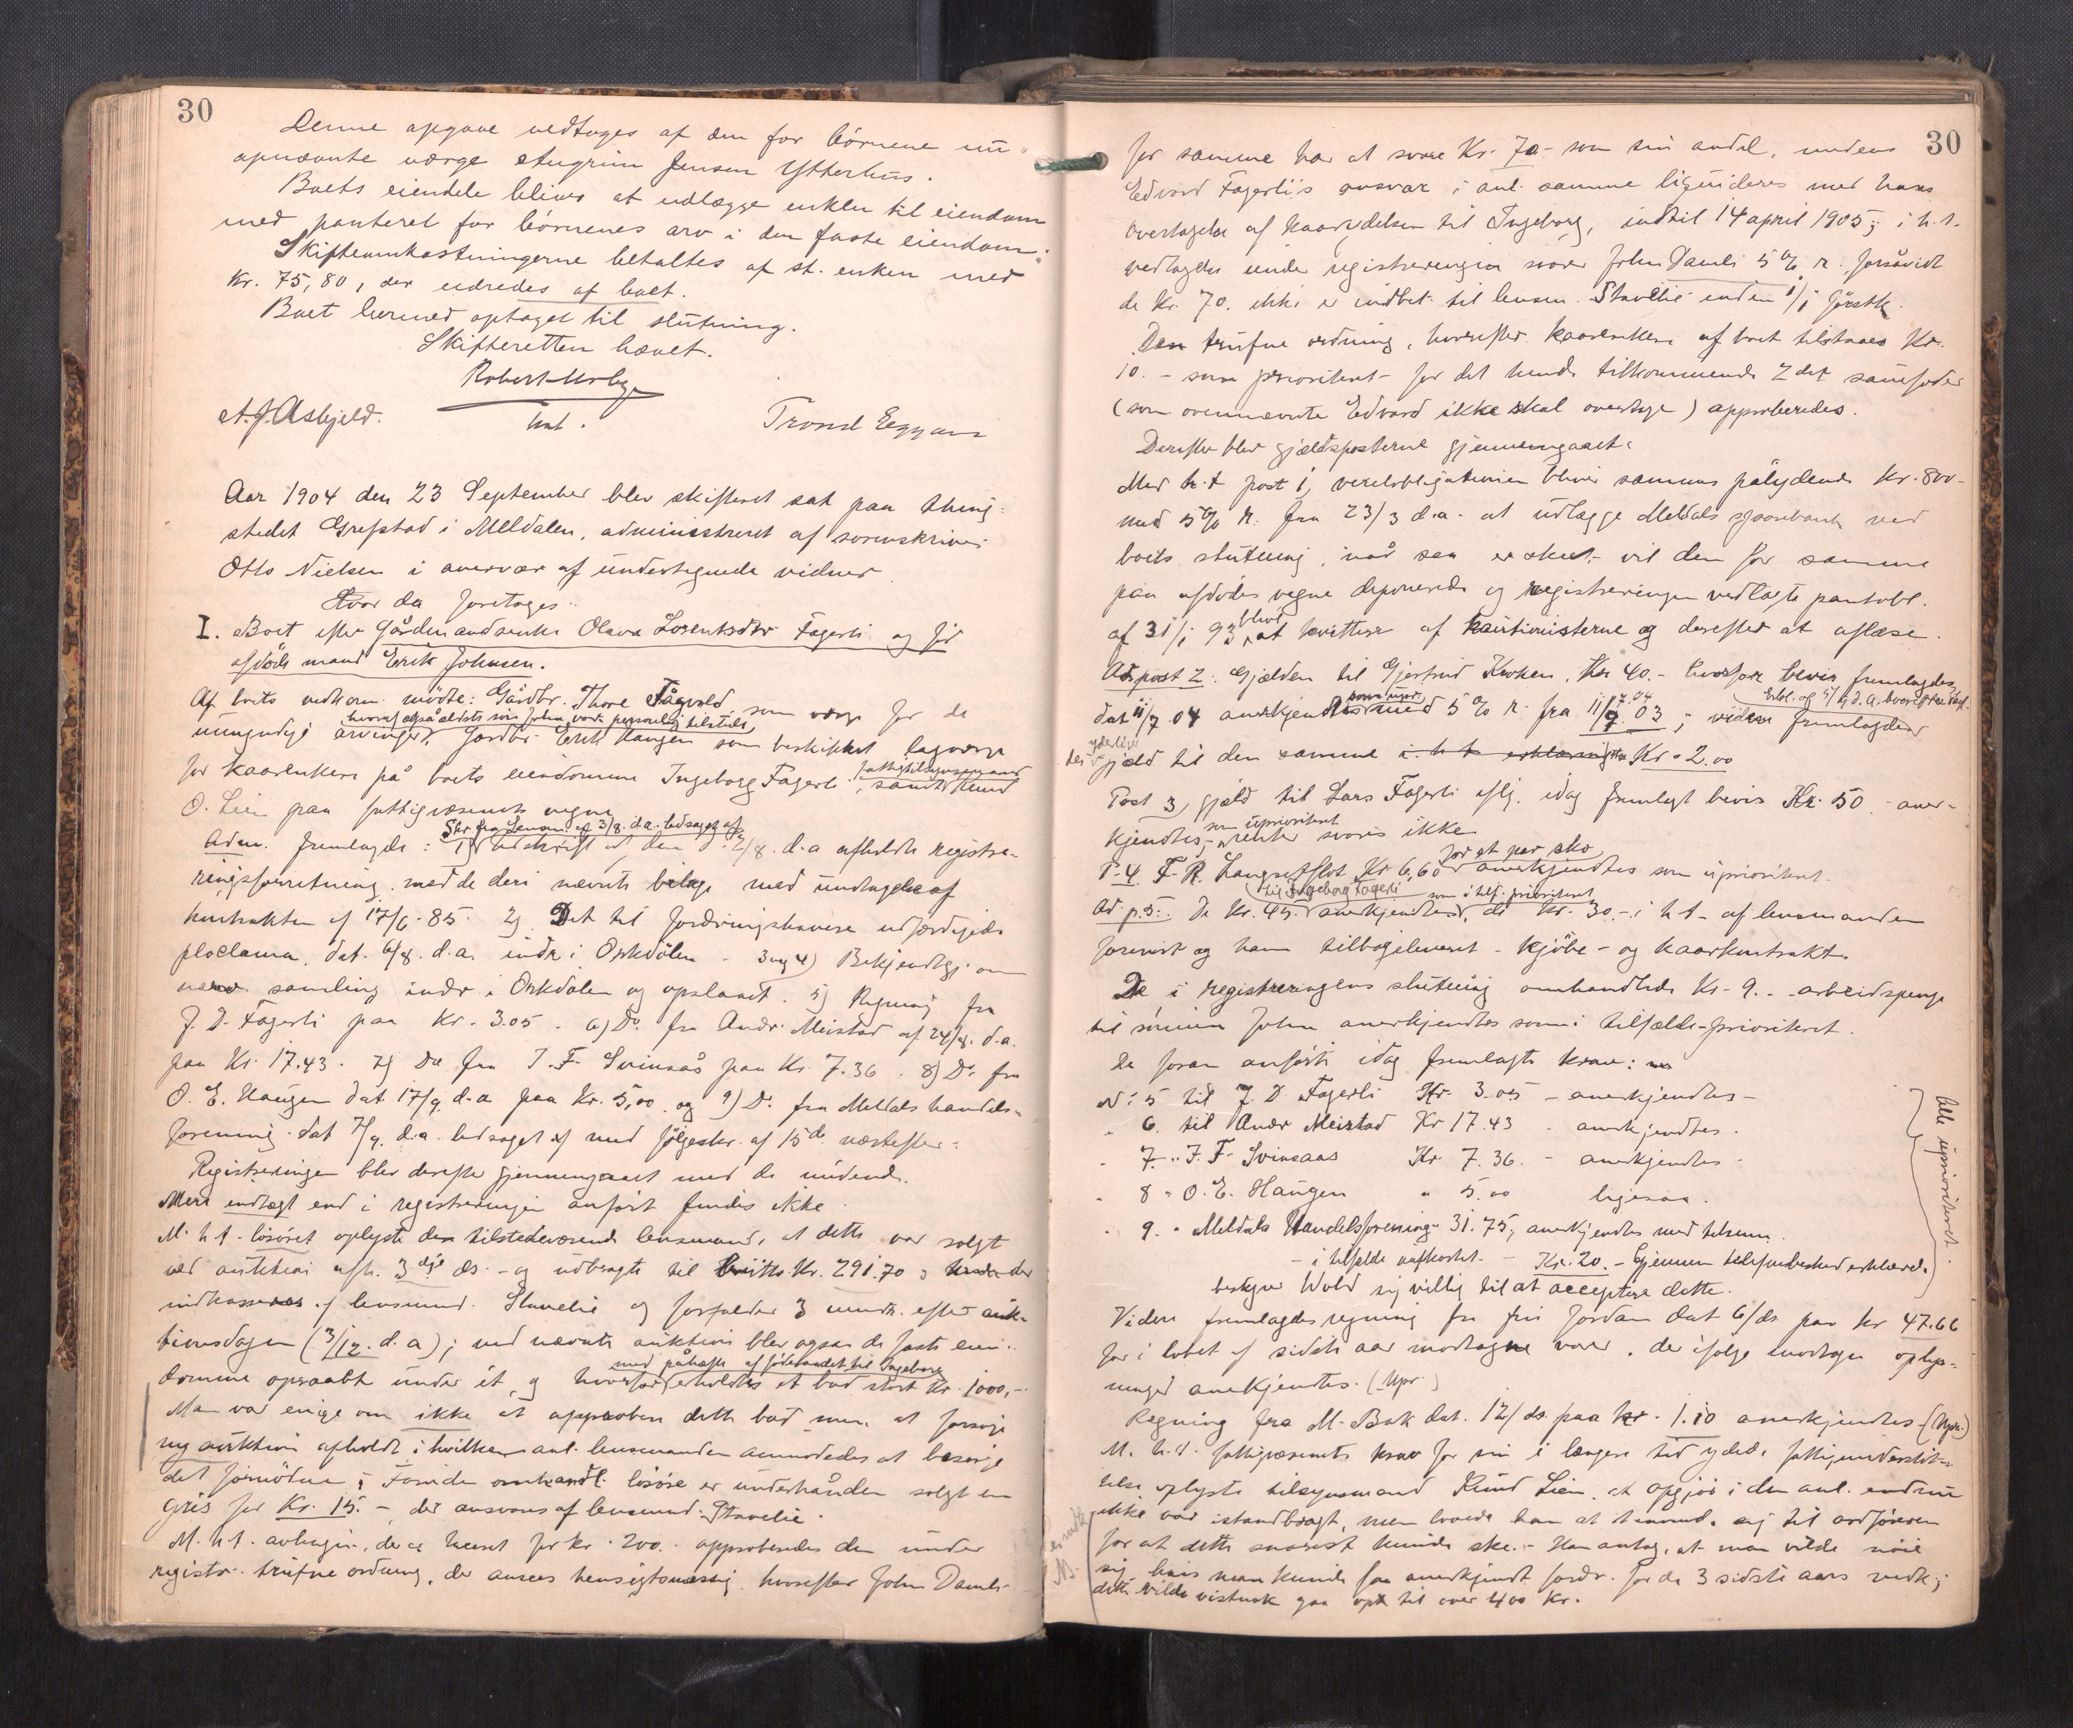 30
Denne opgave vedtoges af den for børnene nu
opnævnte værge Arngrim Jensen Ytterhus.
Boets eiendele bliver at udlægge enken til eiendom
med panteret for børnenes arv i den faste eiendom.
Skifteomkostningerne betaltes af st. enken med
Kr. 75,80, der udredes af boet.
Boet hermed optaget til slutning.
Skifteretten hævet.
A. J. Asbjeld.
Trond Eggan
Aar 1904 den 23 September blev skifteret sat paa thing-
stedet Grefstad i Meldalen, administreret af sorenskriver
Otto Nielsen i overvær af undertegnede vidner.
Hvor da foretoges:
I. Boet efter Gårdmandsenke Olava Lorentsdtr Fagerli og før
afdøde mand Erik Johnsen.
Af boets vedkom. mødte: Gårdbr. Thore Fågvold som værge for de
umyndige arvinger, hvoraf også ældste søn John var personlig tilstede,
Gårdbr Erik Haugen som beskikket lagværge
for kaarenken på boets eiendomme Ingeborg Fagerli, samt fattigtilsynsmand Knud
O. Lien paa fattigvæsenets vegne
Adm. fremlagde: 1) Skr. fra Lensm. af 3/8 d.a. ledsaget af udskrift af den 2/8 d.a afholdte registre-
ringsforretning med de deri nævnte bilage med undtagelse af
kontrakten af 17/6 85. 2) Det til fordringshavere udfærdigede
proclama dat. 6/8 d.a. indr. i Orkdølen - 3 og 4) Bekjendtgj. om
nærv. samling indr. i Orkdølen og opslaaet. 5) Regning fra
J. D. Fagerli paa Kr. 3.05 - 6) Do. fra Andr. Meistad af 24/8 d.a.
paa Kr. 17.43. 7) Do fra J. F. Svinsås paa Kr. 7.36. 8) Do fra
O. E. Haugen dat. 17/9 d.a paa Kr. 5,00 og 9) Do. fra Meldals handels-
forening dat 7/9 d.a. ledsaget af med følgeskr. af 15de næstefter.
Registreringen blev derefter gjennemgaaet med de mødende.
Mere endlagt end i registreringen anført findes ikke.
M. h. t. løsøret oplyste den tilstedeværende lensmand, at dette var solgt
ved auktion afh. 3die ds. og udbragte til brutto Kr. 291.70, der
indkasseres af lensmand Stavelie og forfalder 3 mndr. efter auk-
tionsdagen (3/12 d.a); ved nævnte auktion blev ogsaa de faste eien-
domme opraabt under ét, og hvorfor med påhæfte af føderaadet til Ingeborg erholdtes et bud stort Kr. 1000,-
Man var enige om ikke at approbere dette bud men at forsøge
ny auktion afholdt i hvilken anl. lensmanden anmodedes at besørge
det fornødne; Foruden omhandl. løsøre er underhånden solgt en
gris for Kr. 15. - der ansvares af lensmd. Stavelie.
M. h. t. avlingen, der er taxeret for kr. 200. - approberedes den under
registr. trufne ordning, der ansees hensigtsmæssig, hvorefter John Damli
30
for samme har at svare Kr. 70 - som sin andel, medens
Edvard Fagerli's ansvar i anl. samme liqvideres med hans
overtagelse af kaarydelsen til Ingeborg, indtil 14 april 1905; i h. t.
vedtagelse under registreringen svarer John Damli 5 % r. forsåvidt
de Kr. 70. ikke er indbet. til lensm. Stavelie inden 1/1 førstk.
Den trufne ordning, hvorefter kaarenken af boet tilstaaes Kr.
10. - som prioriteret for det hende tilkommende 2det saufoder
(som ovennævnte Edvard ikke skal overtage) approberedes.
Derefter blev gjældsposterne gjennemgaaet:
Med h. t post 1, vexelobligationen bliver sammes pålydende Kr. 800-
med 5 % r. fra 23/3 d.a. at udlægge Meldals sparebank ved
boets slutning, når saa er skeet vil den for samme
paa afdødes vegne deponerede og registreringen vedlagte pantobl.
af 31/1 93 blive at kvittere af kautionisterne og derefter at aflæse.
Ad post 2. Gjælden til Gjertrud Kroken, Kr 40. - hvorfor bevis fremlagdes
dat 11/7 04 anerkjendtes som upr. med 5 % r. fra 11/7 03; videre fremlagdes Erkl. af d.a. hvorefter
des yderlige gjæld til den samme i h. t. erklæring Kr. 2.00
Post 3, gjæld til Lars Fagerli iflg. idag fremlagt bevis Kr. 50 - aner-
kjendtes, som uprioriteret renter svares ikke
P. 4. F. R. Langsetflot Kr 6,60 for et par sko anerkjendtes som uprioriteret.
Ad. p. 5. De Kr. 45. til Ingeborg Fagerli anerkjendtes, som i tilf. prioriteret da Kr. 30. - i h. t. af lensmanden
forevist og ham tilbageleveret - kjøbe- og kaarkontrakt.
De i registreringens slutning omhandlede Kr. 9. - arbeidspenge
til sønnen John anerkjendtes som i tilfælde prioriteret.
De foran anførte idag fremlagte krav:
No: 5 til J. D Fagerli Kr. 3.05 - anerkjendtes -
" 6. til Andr Meistad Kr 17.43 - anerkjendtes.
" 7. " J. F. Svinsaas Kr. 7.36. - anerkjendtes -
" 8 " O. E. Haugen " 5.00 ligesaa.
" 9. " Meldals Handelsforening 31.75, anerkjendtes med
- i tilfælde - Kr. 20. - Gjennem telefonbesked erklærede
bestyrer Wold sig villig til at acceptere dette.
alle uprioriteret.
Videre fremlagdes regning fra fru Jordan dat 6/ds paa kr 47.66
for i løbet af sidste aar modtagne varer, der ifølge modtagne oplys-
ninger anerkjendtes. (Upr.)
Regning fra M. Bak dat. 12/ds paa kr. 1.10 anerkjendtes (Upr.)
M. h. t. fattigvæsenets krav for sin i længere tid ydede fattigunderstøt-
telse oplyste tilsynsmand Knud Lien, at opgjør i den anl. endnu
ikke var istandbragt, men lovede han at henvende sig til ordføreren
for at dette snarest kunde ske. - Han antog, at man vilde nøie
sig, hvis man kunde faa anerkjendt fordr. for de 3 sidste aars vedk.;
dette vilde vistnok gaa op til over 400 Kr.